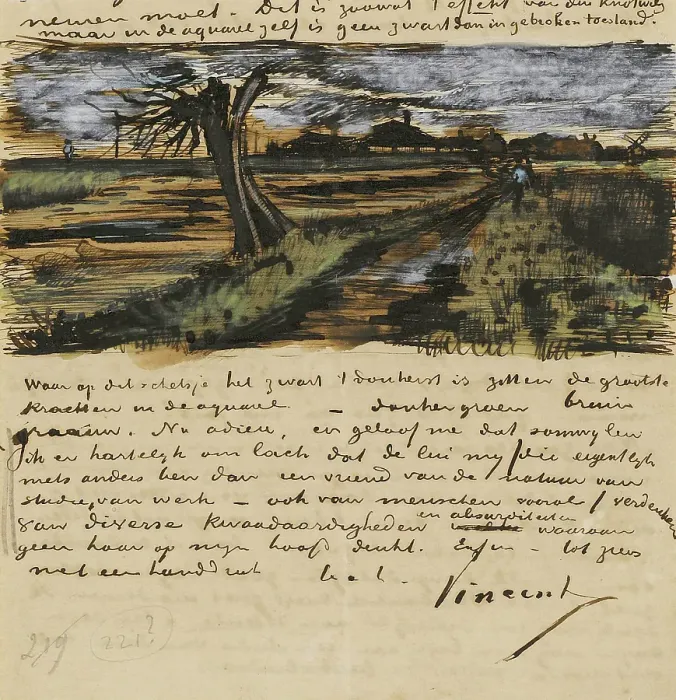 nemen moet. Dit is zoowat 't effekt van den knotwilg
maar in de aquarel zelf is geen zwart dan in gebroken toestand.
Waar op dit schetsje het zwart 't donkerst is zitten de grootste
krachten in de aquarel – donkergroen bruin
graauw. Nu adieu, en geloof me dat somwijlen
ik er hartelyk om lach dat de lui my die eigentlyk
niets anders ben dan een vriend van de natuur van
studie, van werk – ook van menschen vooral / verdenken
van diverse kwaadaardigheden en absurditeiten waaraan
geen haar op myn hoofd denkt. Enfin – tot ziens
met een handdruk t. à t.
Vincent
219 221?